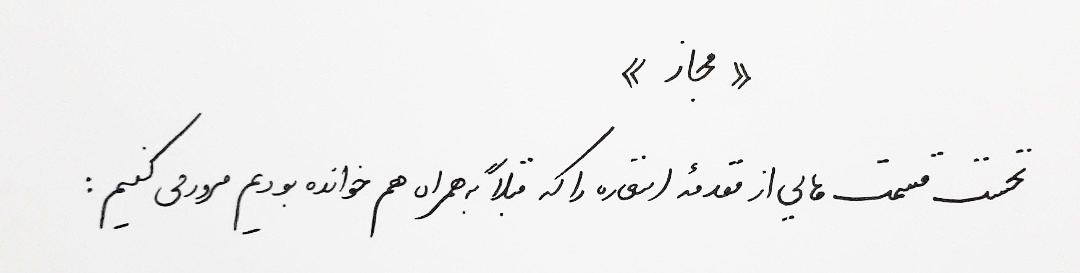 « مجاز »
نخست قسمت هایی از مقدمهٔ استعاره را که قبلاً به همراه هم خوانده بودیم مرور می کنیم :